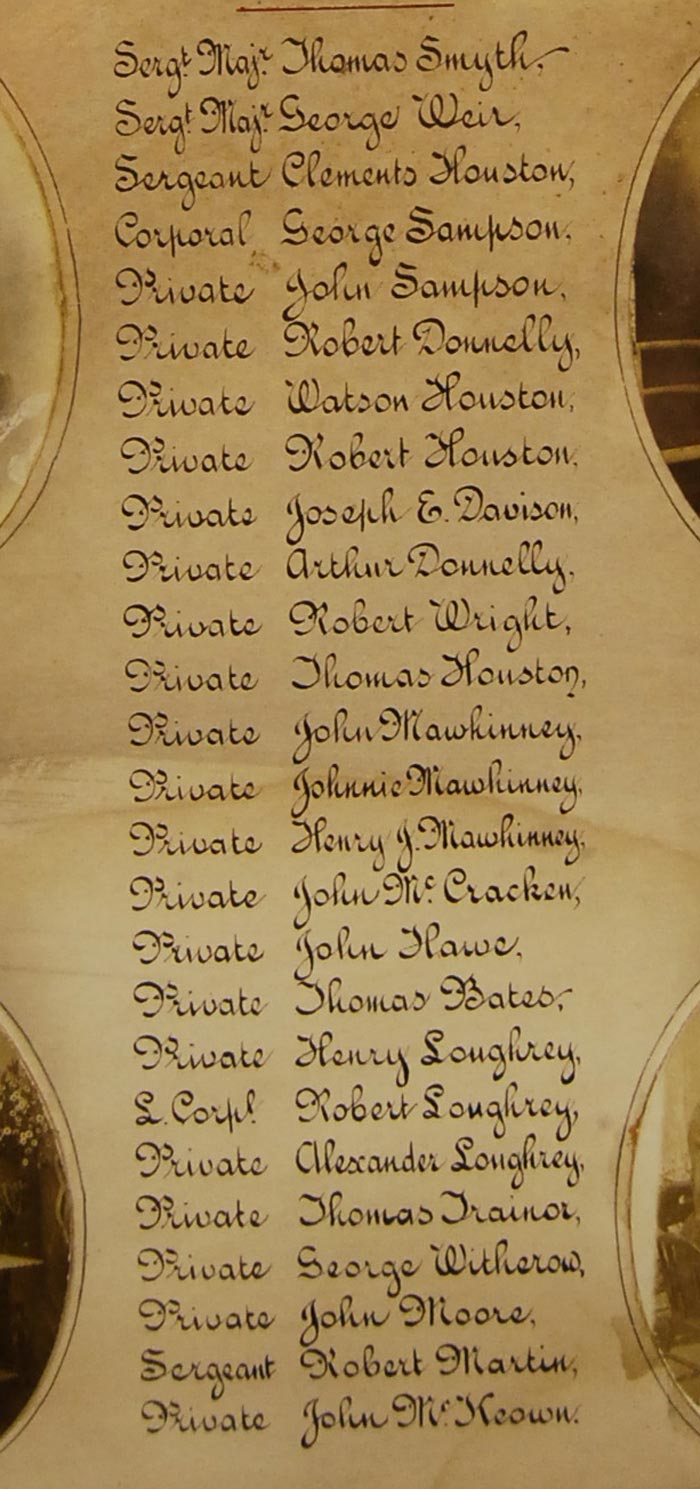 Sergt. Majr. Thomas Smyth,
Sergt. Majr. George Weir,
Sergeant Clements Houston,
Corporal George Sampson.
Private John Sampson,
Private Robert Donnelly,
Private Watson Houston,
Private Robert Houston.
Private Joseph E. Davison,
Private Arthur Donnelly,
Private Robert Wright,
Private Thomas Houston,
Private John Mawhinney,
Private Johnnie Mawhinney,
Private Henry J. Mawhinney,
Private John Mc. Cracken,
Private John Hawe,
Private Thomas Bates,
Private Henry Loughrey,
L. Corpl. Robert Loughrey,
Private Alexander Loughrey,
Private Thomas Trainor,
Private George Witherow,
Private John Moore,
Sergeant Robert Martin,
Private John Mc. Keown.